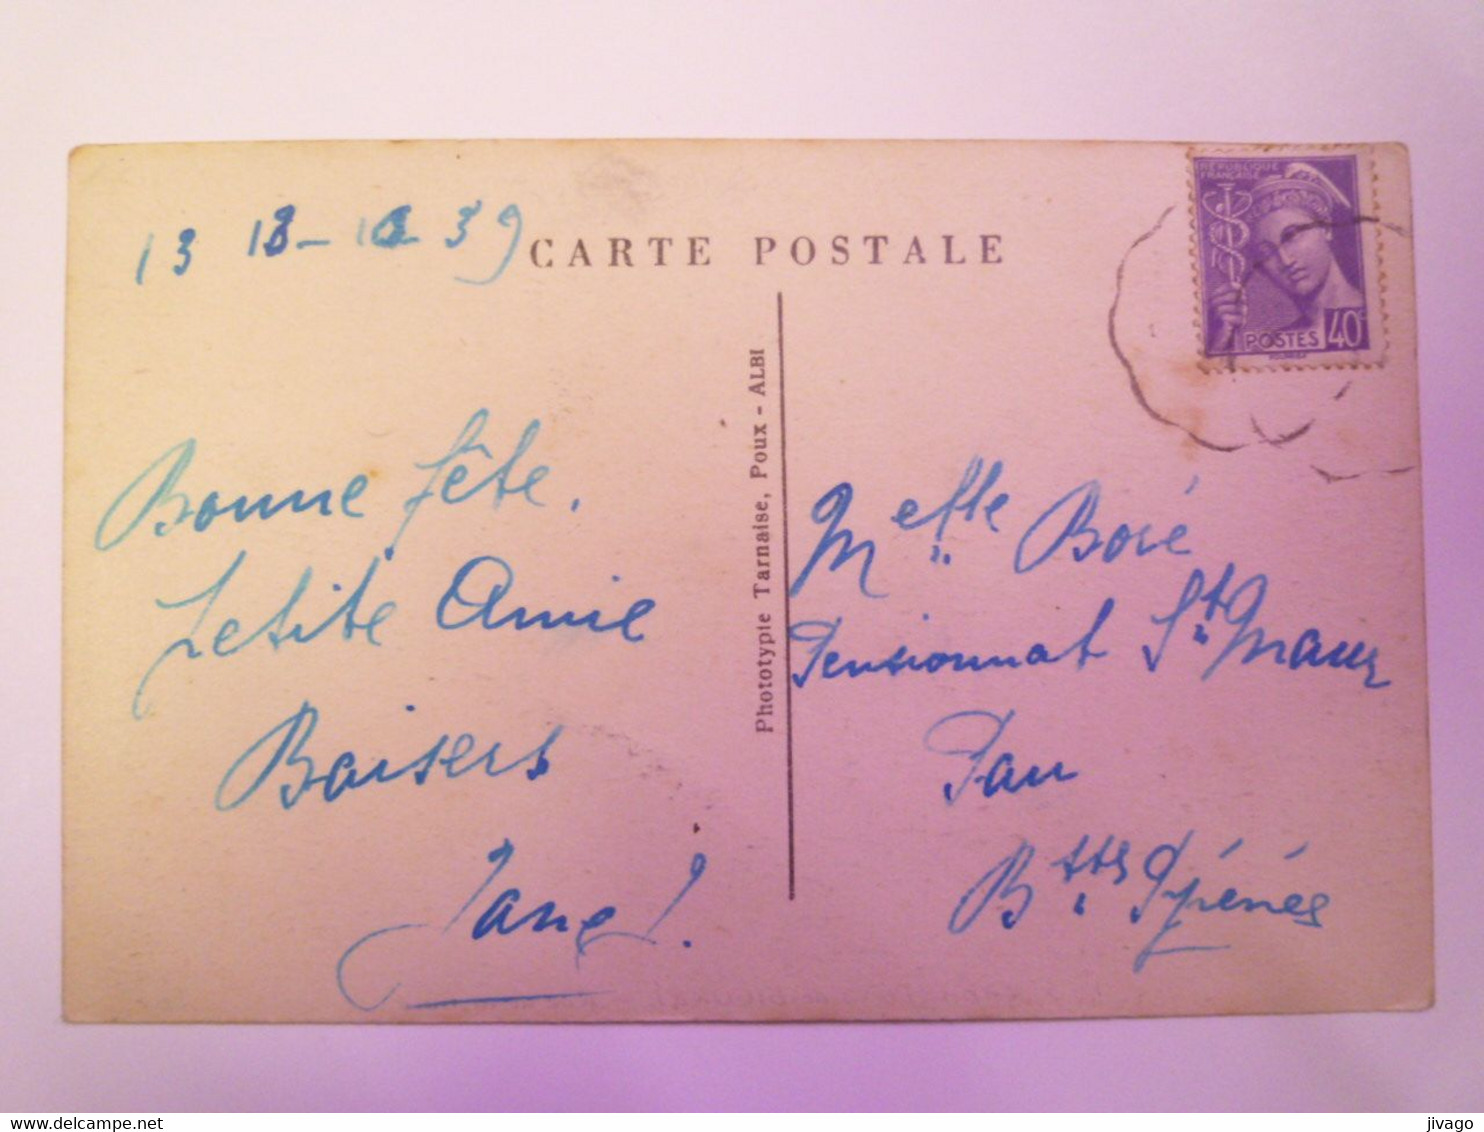 13 13 - 10 - 39
CARTE POSTALE
RÉPUBLIQUE
FRANÇAISE
POSTES 40
Bonne fête.
Petite Amie
Baisers
Jane J.
Phototypie Tarnaise, Poux - ALBI
Melle Boré
Pensionnat St Maur
Pau
Btes Pyrénées
jivago